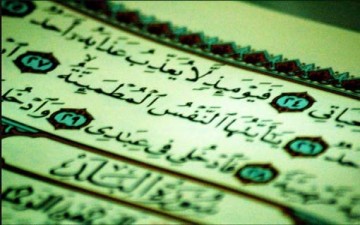 فَيَوْمَئِذٍ لَّا يُعَذِّبُ عَذَابَهُۥٓ أَحَدٌ ٢٥
٢٦ يَٰٓأَيَّتُهَا ٱلنَّفْسُ ٱلْمُطْمَئِنَّةُ ٢٧
٢٨ فَٱدْخُلِى فِى عِبَٰدِى ٢٩ وَٱدْخُلِى
سُورَةُ الْبَلَدِ